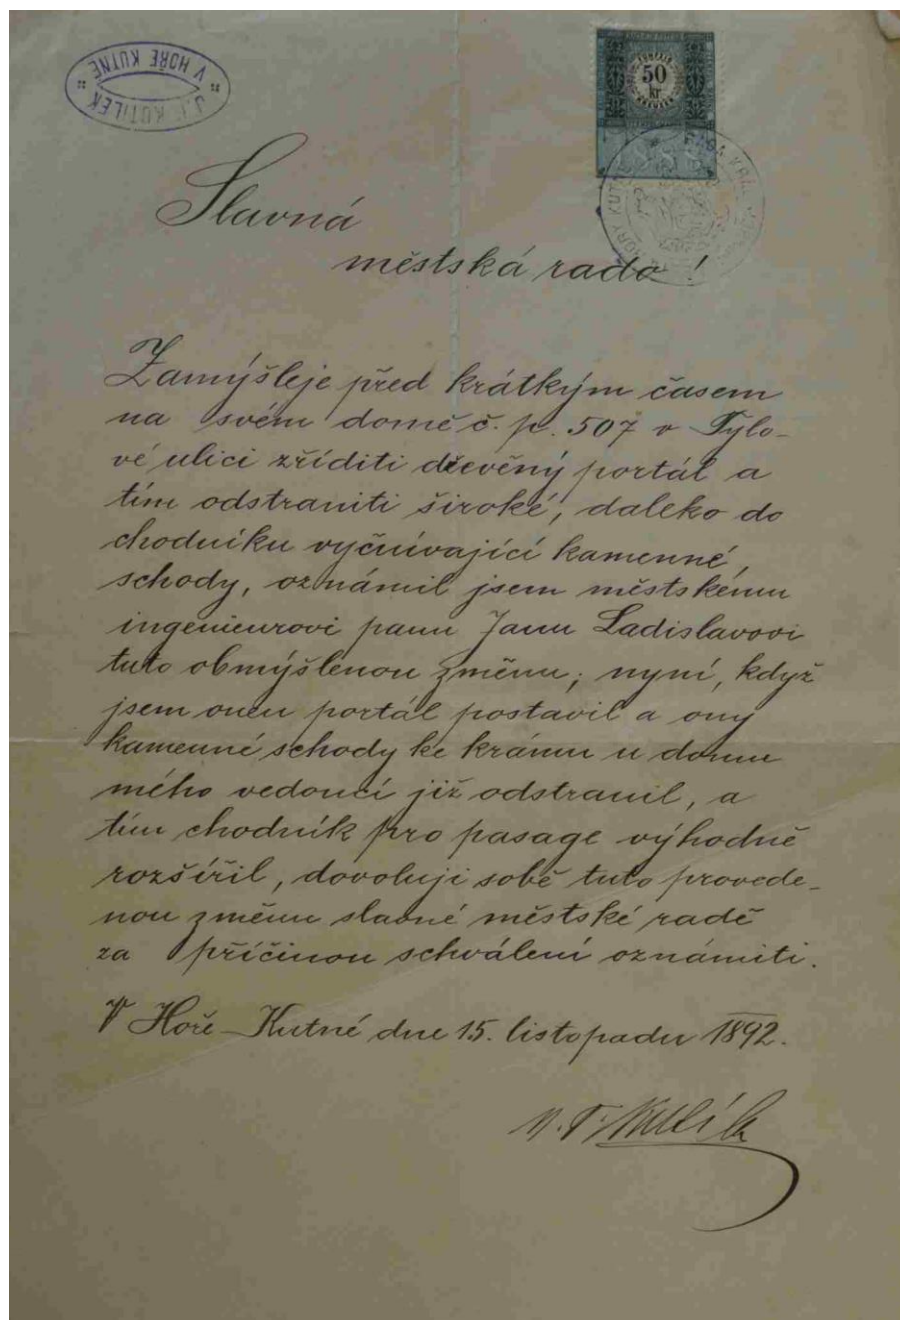 J. F. KUTÍLEK
V HOŘE KUTNÉ
50
kr
Slavná
městská rado!
Zamýšleje před krátkým časem
na svém domě č. p. 507 v Tylo-
vé ulici zříditi dřevěný portál a
tím odstraniti široké, daleko do
chodníku vyčnívající kamenné
schody, oznámil jsem městskému
ingenieurovi panu Janu Ladislavovi
tuto obmýšlenou změnu; nyní, když
jsem onen portál postavil a ony
kamenné schody ke krámu u domu
mého vedoucí již odstranil, a
tím chodník pro pasage výhodně
rozšířil, dovoluji sobě tuto provede-
nou změnu slavné městské radě
za příčinou schválení oznámiti.
V Hoře-Kutné dne 15. listopadu 1892.